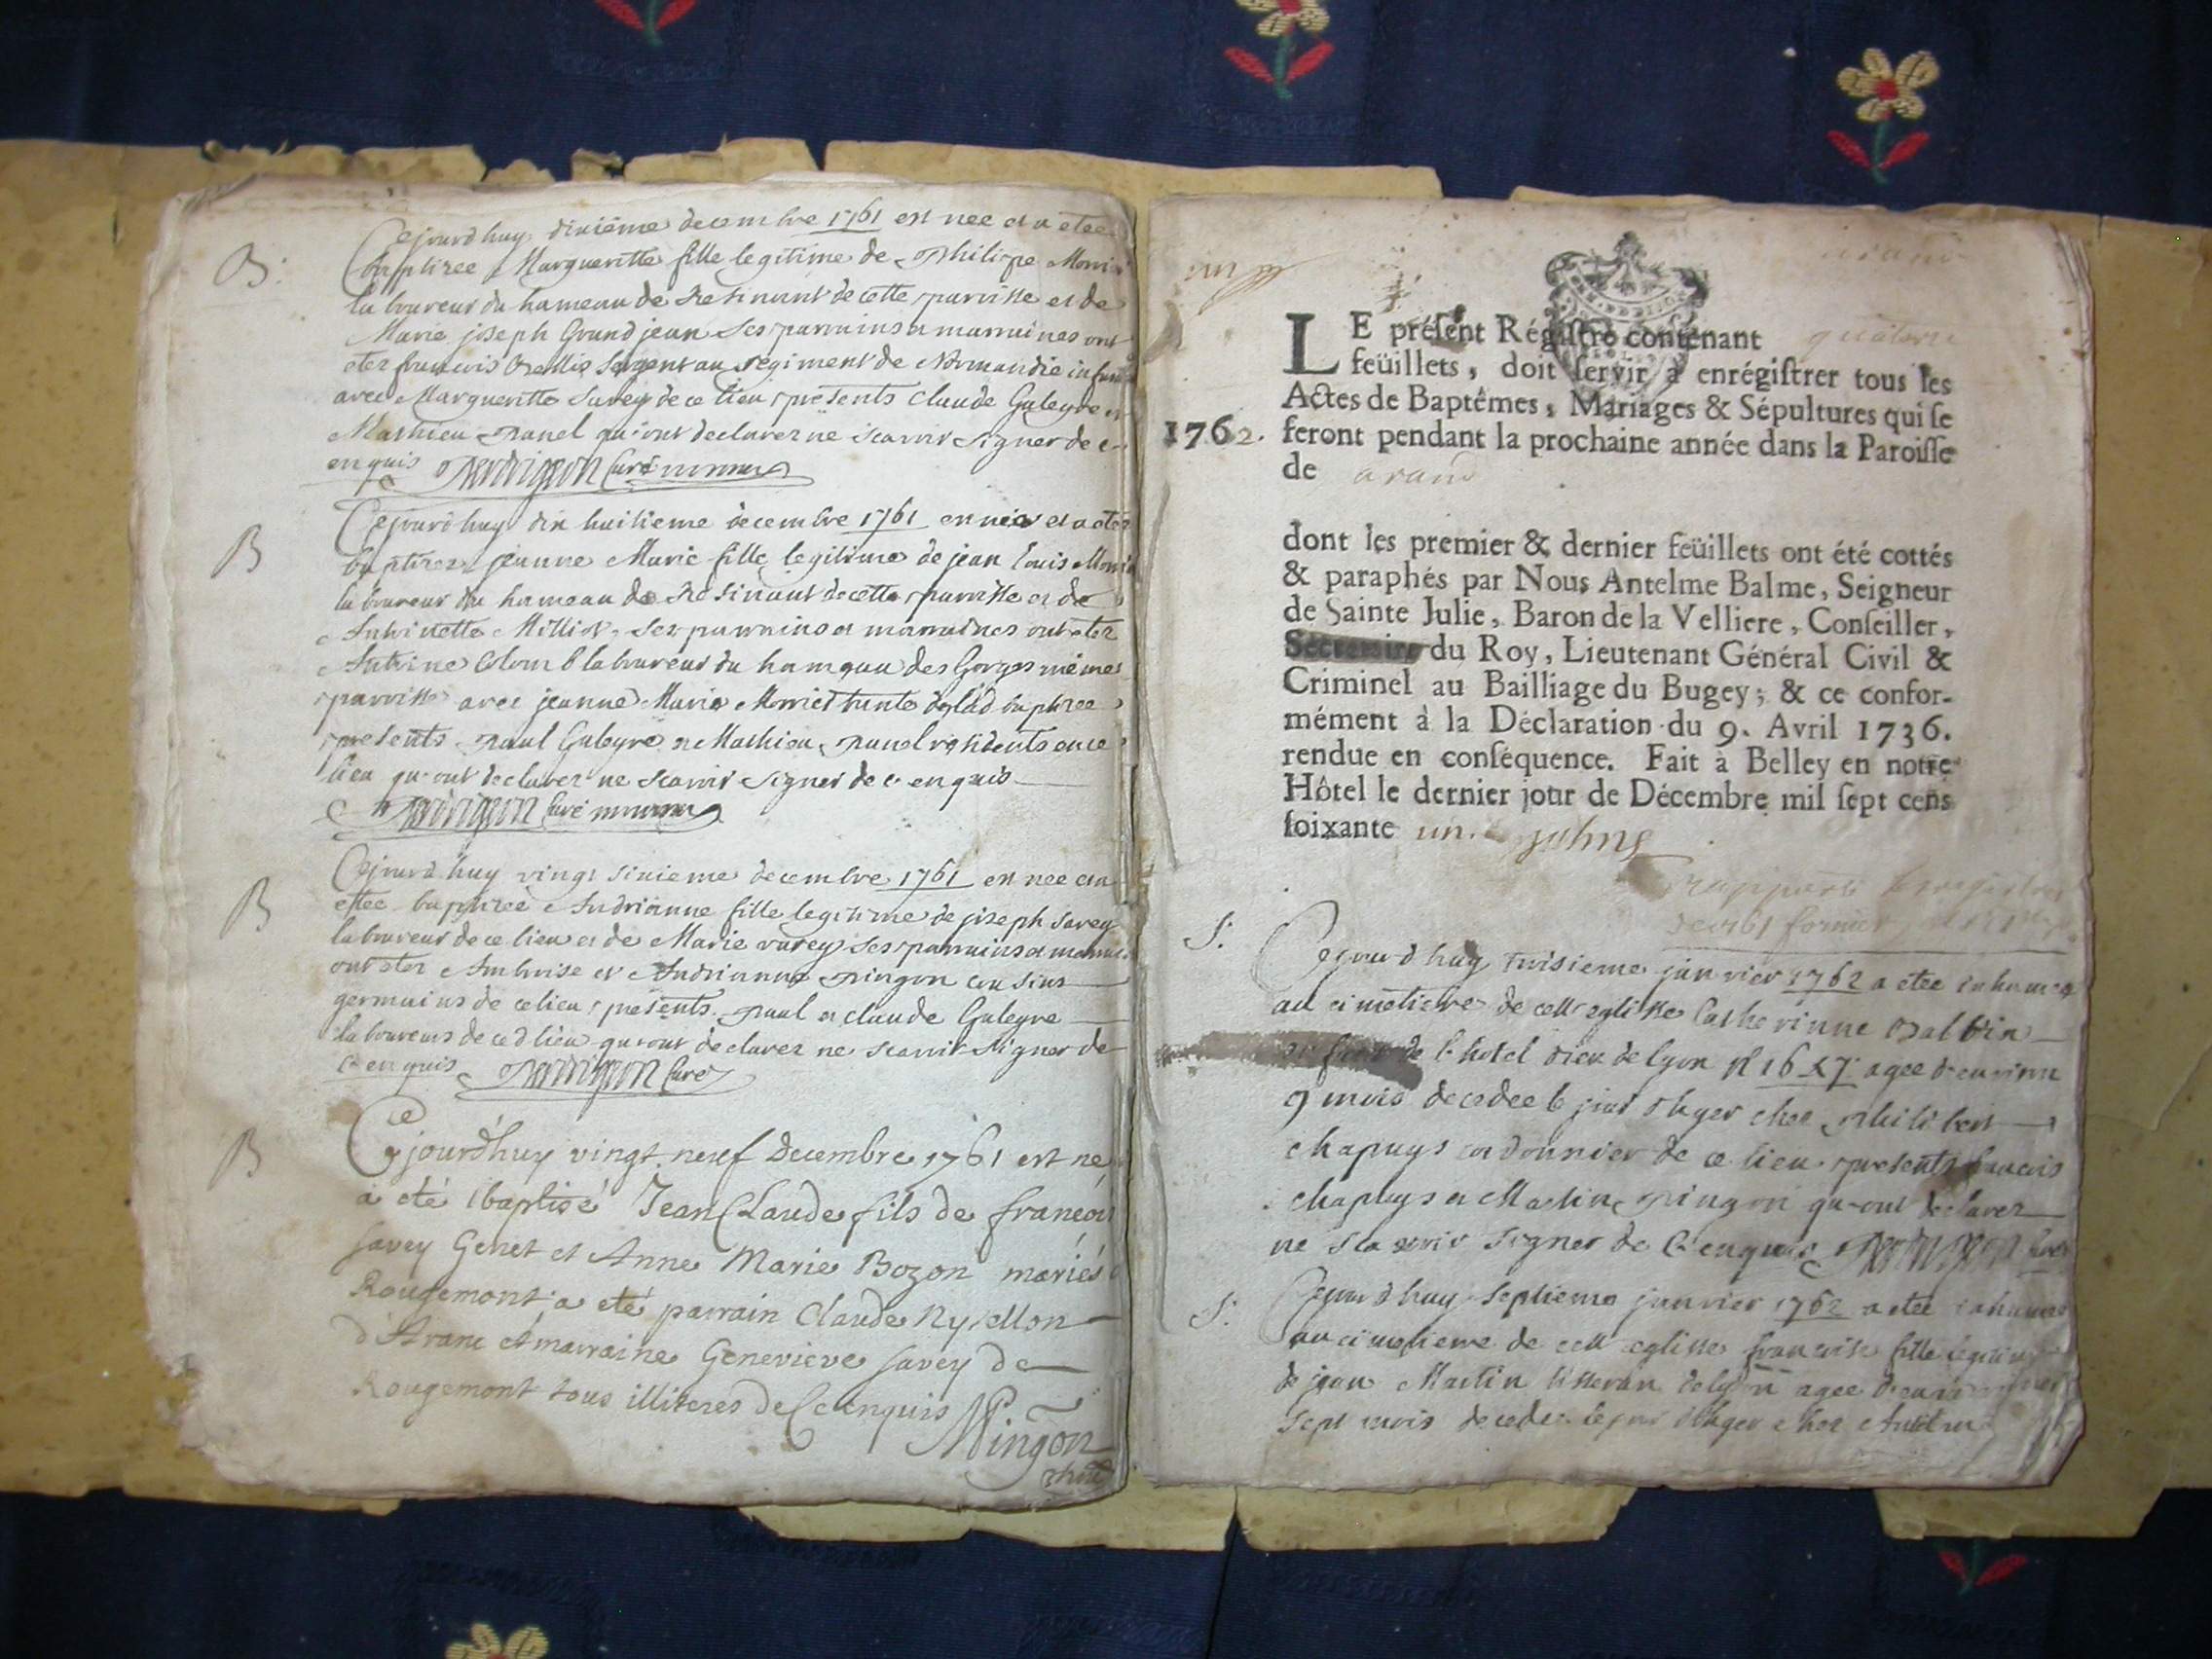 B.
Cejourdhuy dixième decembre 1761 est nee et a etee
baptizee Margueritte fille legitime de Philippe
laboureur du hameau de Resinant de cette parroisse et de
Marie joseph Grand jean ses parrains et marraines ont
etez francois sergent au regiment de Normandie
avec Margueritte Savey de ce lieu presents Claude Galeyre et
Mathieu Panel qui ont declarez ne scavoir signer de ce
enquis curé
B
Cejourdhuy dix huitieme decembre 1761 est née et a etez
baptizez jeanne Marie fille legitime de jean louis
laboureur du hameau de Resinant de cette parroisse et de
Antoinette Milliet ses parrains et marraines ont etez
Antoine Colomb laboureur du hameau des Gorges même
parroisse avec jeanne Marie tante de lad baptizee
presents Paul Galeyre et Mathieu Panel residents en ce
lieu qui ont declarez ne scavoir signer de ce enquis
curé
B
Cejourdhuy vingt sixieme decembre 1761 est nee et a
etee baptizée Andrianne fille legitime de joseph Savey
laboureur de ce lieu et de Marie varey ses parrains et
ont etez Ambroise et Andrianne Pingon cousins
germains de ce lieu presents Paul et claude Galeyre
laboureurs de ced lieu qui ont declarez ne scavoir signer de
ce enquis curé
B
Cejourd'huy vingt neuf Decembre 1761 est né
a été baptisé Jean Claude fils de françois
savey Genet et Anne Marie Bozon mariés
Rougemont a eté parrain Claude
d'Aranc et marraine Genevieve savey de
Rougemont tous illiteres de ce enquis
Mingon
LE présent Régistre contenant quatorze
feüillets, doit servir à enrégistrer tous les
Actes de Baptêmes, Mariages & Sépultures qui se
1762. feront pendant la prochaine année dans la Paroisse
de aranc
dont les premier & dernier feüillets ont été cottés
& paraphés par Nous Antelme Balme, Seigneur
de Sainte Julie, Baron de la Velliere, Conseiller,
Secretaire du Roy, Lieutenant Général Civil &
Criminel au Bailliage du Bugey; & ce confor-
mément à la Déclaration du 9. Avril 1736.
rendue en conséquence. Fait à Belley en notre
Hôtel le dernier jour de Décembre mil sept cens
soixante un.
S.
Cejourdhuy troisieme janvier 1762 a etee inhumée
au cimetiere de cette eglisse Catherinne Balbin
de l'hotel dieu de lyon agee d'environ
9 mois decedee le jour d'hyer chez Philibert
chapuys cordonnier de ce lieu presents francois
chapuys et Martin Pingon qui ont declarez
ne scavoir signer de ce enquis curé
S.
Cejourdhuy septieme janvier 1762 a etee inhumee
au cimetiere de cette eglisse francoise fille legitime
de jean Martin tisseran de lyon agee d'environ
sept mois decedee le jour d'hyer chez